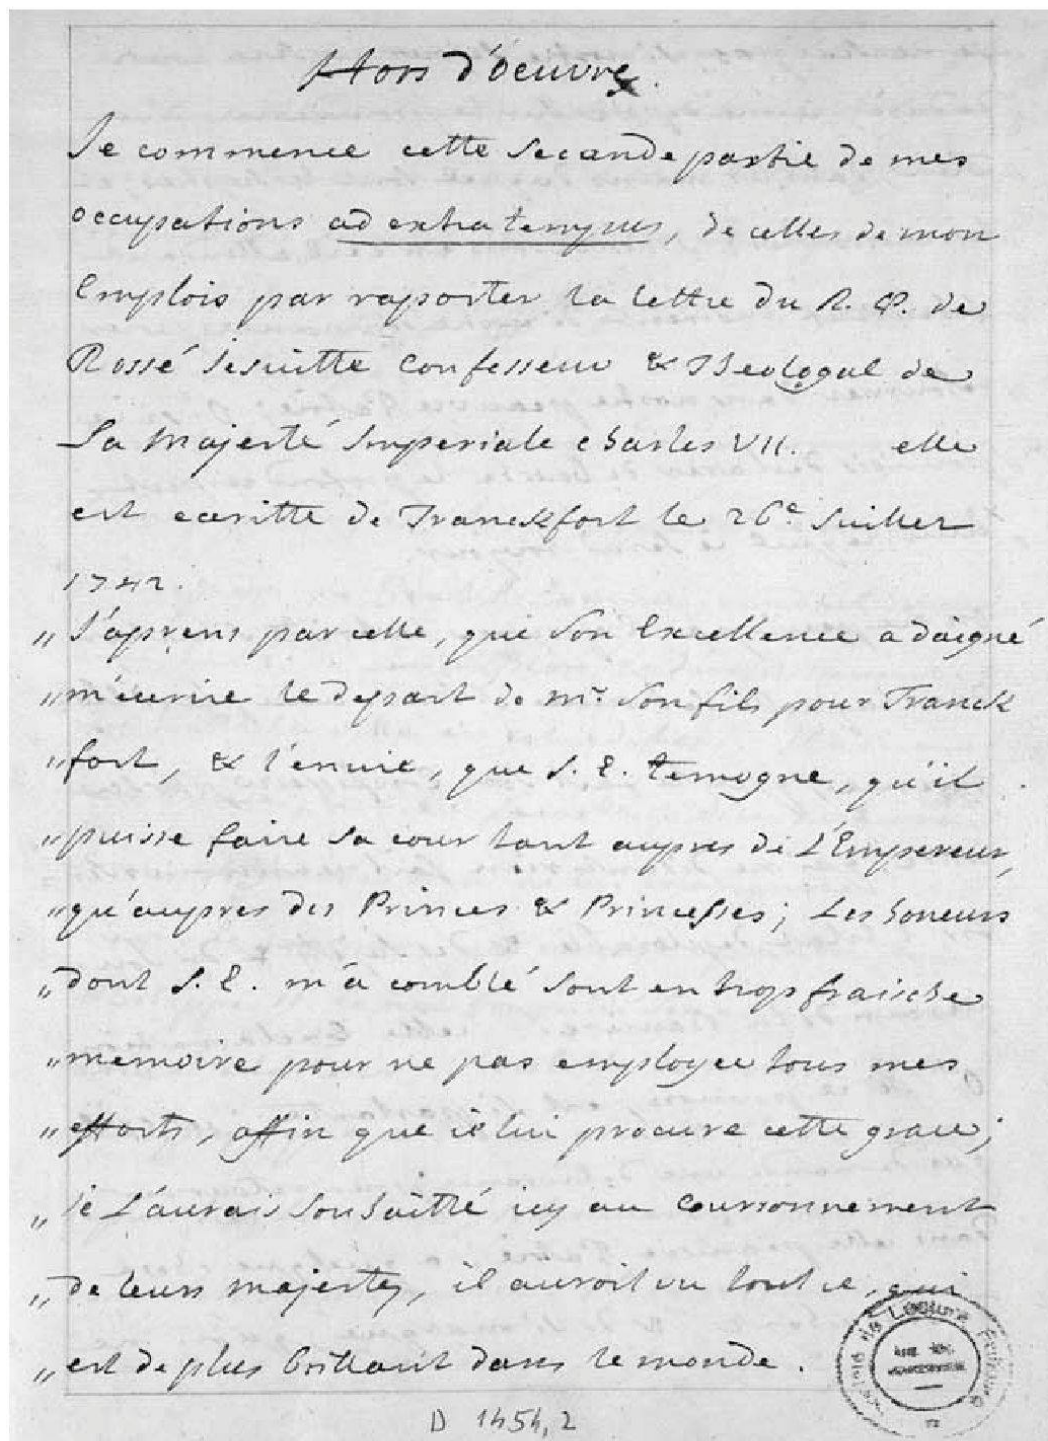 Hors d'oeuvre.
Je commence cette Seconde partie de mes
occupations ad extra tempus, de celles de mon
Emplois par raporter la lettre du R. P. de
Rossé Jesuitte Confesseur & Theologal de
Sa Majesté Imperiale Charles VII. elle
est ecritte de Franckfort le 26e Juillet
1742.
„ J'aprens par celle, que Son Excellence a daigné
„ m'ecrire le depart de mr. Son fils pour Franck
„ fort, & l'envie, que S. E. temogne, qu'il
„ puisse faire sa cour tant aupres de L'Empereur,
„ qu'aupres des Princes & Princesses; Les honeurs
„ dont S. E. m'a comblé sont en trop fraische
„ memoire pour ne pas employer tous mes
„ efforts, affin que je lui procure cette grace;
„ je L'aurais souhaitté icy au Couronnement
„ de leurs majestez, il auroit vu tout ce, qui
„ est de plus brillant dans le monde.
D 1454, 2